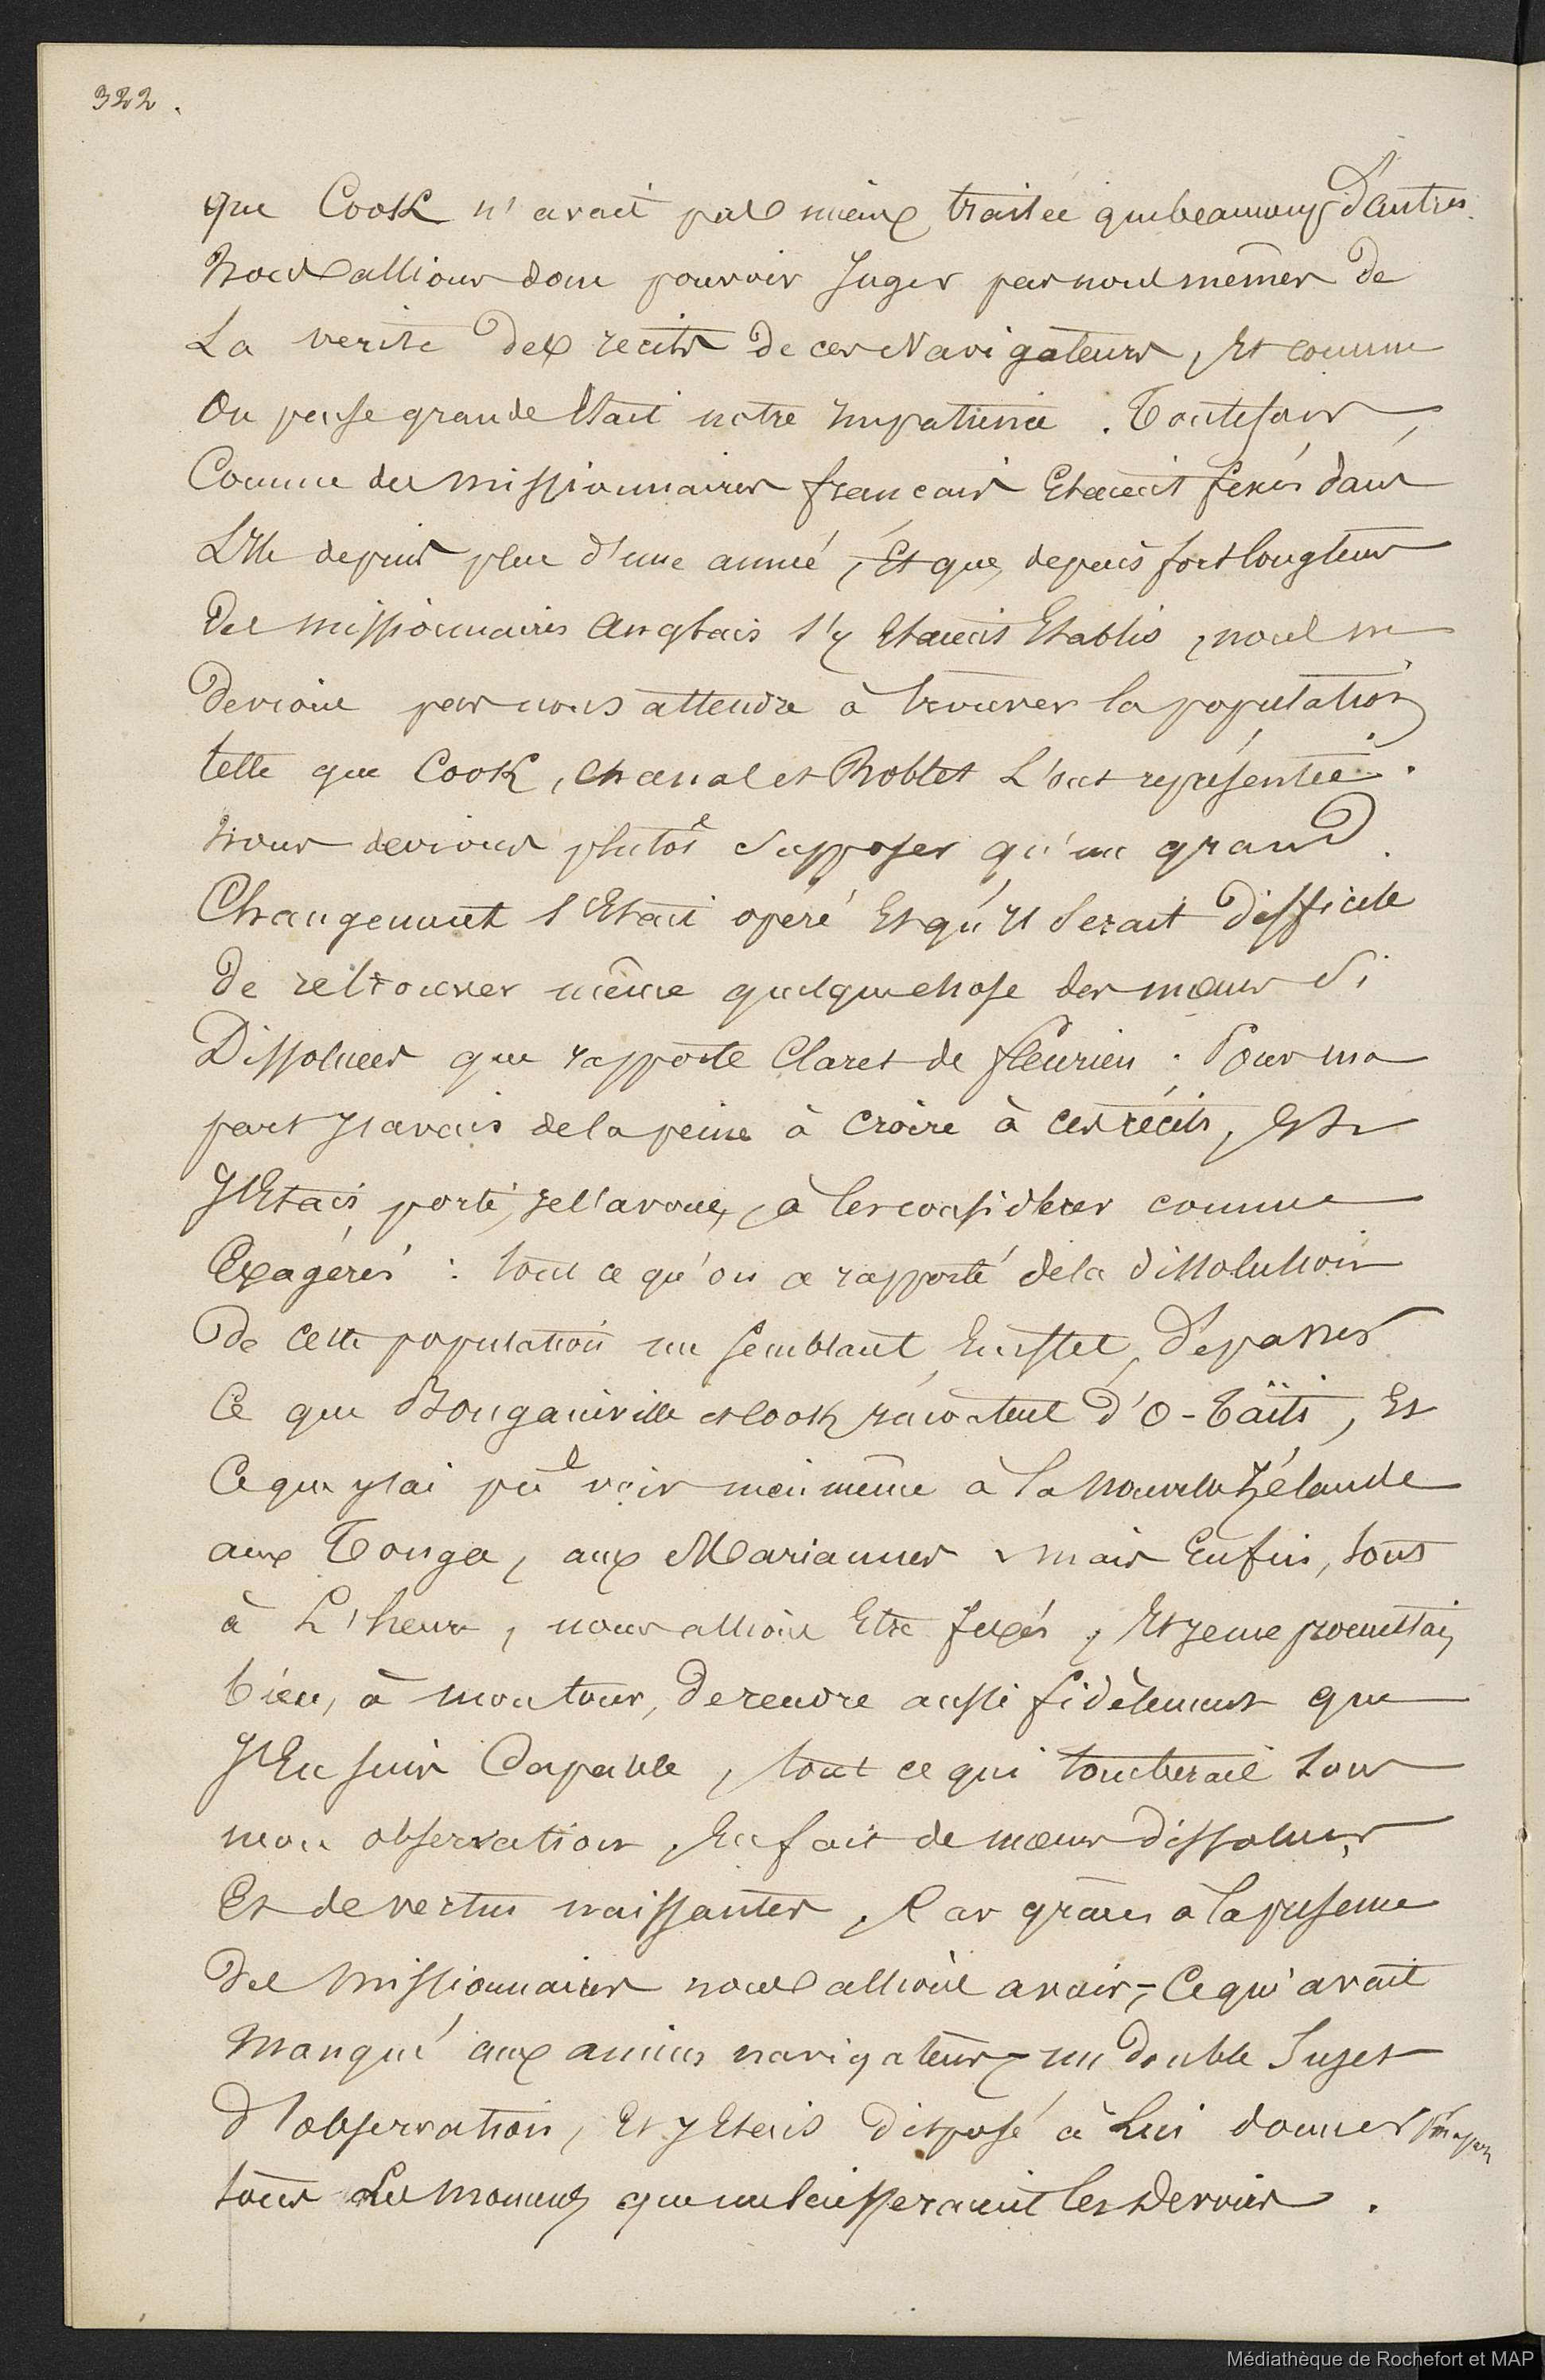 322.
que Cook n'avait pas mieux traitée que beaucoup d'autres.
Nous allions donc pouvoir Juger par nous mêmes de
La verité des recits de ces Navigateurs, Et comme
On pense grande Etait notre Impatience. Toutefois,
Comme des missionnaires francais Etaient fixés dans
L'Ile depuis plus d'une année, Et que, depuis fort longtems
Des missionnaires Anglais s'y Etaient Etablis, nous ne
Devions pas nous attendre à trouver la population
telle que Cook, Chanal et Roblet L'ont représentée.
Nous devions plutôt Supposer qu'un grand
Changement s'Etait opéré Et qu'Il Serait difficile
De retrouver même quelque chose des mœurs Si
Dissolues que rapporte Claret de fleurieu. Pour ma
part J'avais de la peine à Croire à ces récits, Et
J'Etais porté, Je l'avoue, à les considérer comme
Exagérés : tout ce qu'on a rapporté de la dissolution
De cette population me semblant, En effet, dépasser
Ce que Bougainville et Cook racontent d'O-Taïti, Et
Ce que J'ai pu voir moi même à la Nouvelle Zélande
aux Tonga, aux Mariannes mais Enfin, tout
à L'heure, nous allions Etre fixés, Et Je me promettais
bien, à mon tour, de rendre aussi fidèlement que
J'En suis Capable, tout ce qui tomberait sous
mon observation, En fait de mœurs dissolues
Et de vertus naissantes, Car grâces à la présence
Des Missionnaires nous allions avoir, - Ce qui avait
Manqué aux anciens navigateurs - un double Sujet
d'observation, Et J'Etais disposé à Lui donner
tous Les Momens que me laisseraient les Devoirs.
Médiathèque de Rochefort et MAP